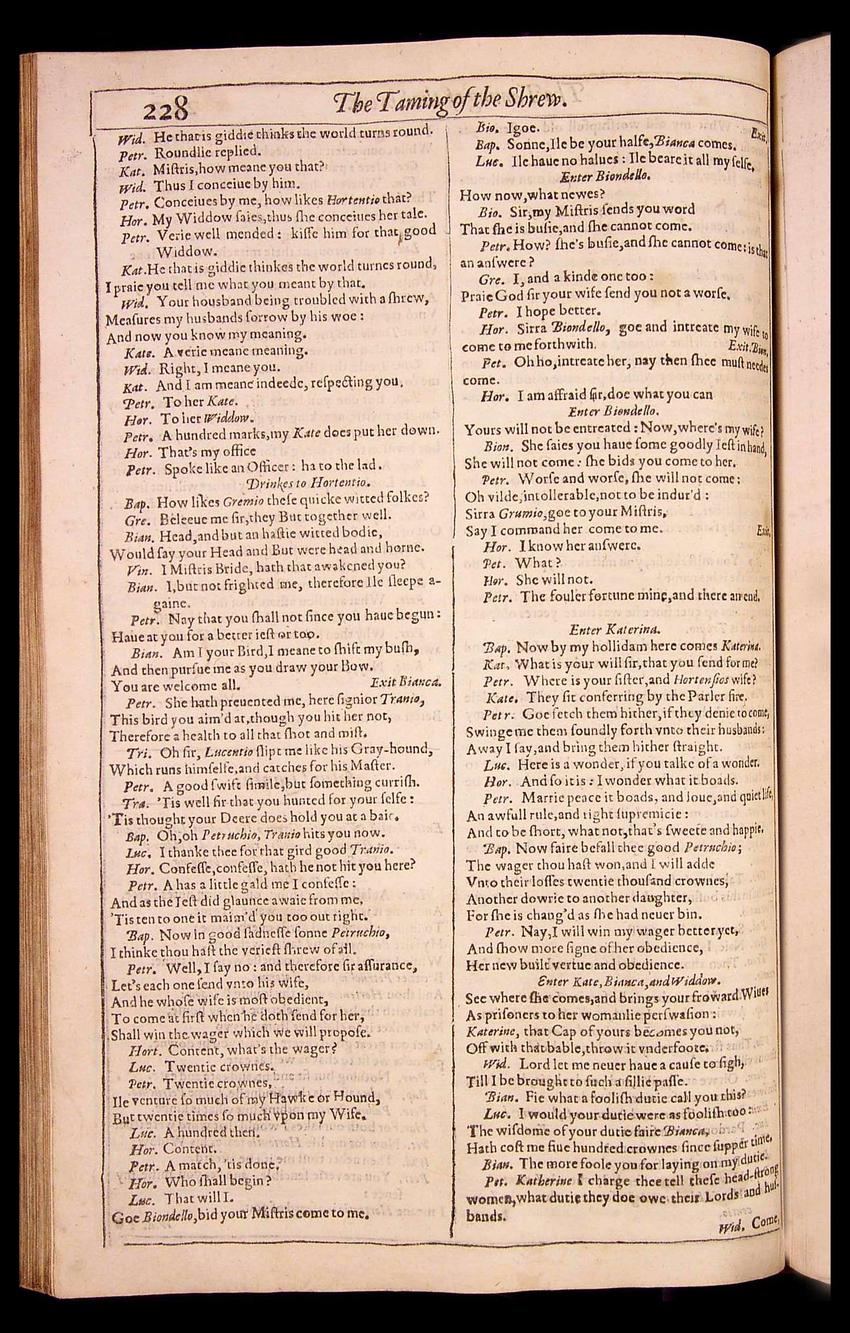 228
The Taming of the Shrew.
Wid. He that is giddie thinks the world turns round.
Petr. Roundlie replied.
Kat. Miſtris,how meane you that?
Wid. Thus I conceiue by him.
Petr. Conceiues by me, how likes Hortentio that?
Hor. My Widdow ſaies,thus ſhe conceiues her tale.
Petr. Verie well mended: kiſſe him for that good
Widdow.
Kat.He that is giddie thinkes the world turnes round,
I praie you tell me what you meant by that.
Wid. Your housband being troubled with a ſhrew,
Meaſures my husbands ſorrow by his woe:
And now you know my meaning.
Kate. A verie meane meaning.
Wid. Right, I meane you.
Kat. And I am meane indeede, reſpecting you.
Petr. To her Kate.
Hor. To her Widdow.
Petr. A hundred marks,my Kate does put her down.
Hor. That's my office
Petr. Spoke like an Officer: ha to the lad.
Drinkes to Hortentio.
Bap. How likes Gremio theſe quicke witted folkes?
Gre. Beleeue me ſir,they But together well.
Bian. Head,and but an haſtie witted bodie,
Would ſay your Head and But were head and horne.
Vin. I Miſtris Bride, hath that awakened you?
Bian. I,but not frighted me, therefore Ile ſleepe a-
gaine.
Petr. Nay that you ſhall not ſince you haue begun:
Haue at you for a better ieſt or too.
Bian. Am I your Bird,I meane to ſhift my buſh,
And then purſue me as you draw your Bow.
You are welcome all. Exit Bianca.
Petr. She hath preuented me, here ſignior Tranio,
This bird you aim'd at,though you hit her not,
Therefore a health to all that ſhot and miſt.
Tri. Oh ſir, Lucentio ſlipt me like his Gray-hound,
Which runs himſelfe,and catches for his Maſter.
Petr. A good ſwift ſimile,but ſomething curriſh.
Tra. 'Tis well ſir that you hunted for your ſelfe:
'Tis thought your Deere does hold you at a baie.
Bap. Oh,oh Petruchio, Tranio hits you now.
Luc. I thanke thee for that gird good Tranio.
Hor. Confeſſe,confeſſe, hath he not hit you here?
Petr. A has a little gald me I confeſſe:
And as the Ieſt did glaunce awaie from me,
'Tis ten to one it maim'd you too out right.
Bap. Now in good ſadneſſe ſonne Petruchio,
I thinke thou haſt the verieſt ſhrew of all.
Petr. Well,I ſay no: and therefore ſir aſſurance,
Let's each one ſend vnto his wife,
And he whoſe wife is moſt obedient,
To come at firſt when he doth ſend for her,
Shall win the wager which we will propoſe.
Hort. Content, what's the wager?
Luc. Twentie crownes.
Petr. Twentie crownes,
Ile venture ſo much of my Hawke or Hound,
But twentie times ſo much vpon my Wife.
Luc. A hundred then.
Hor. Content.
Petr. A match, 'tis done.
Hor. Who ſhall begin?
Luc. That will I.
Goe Biondello,bid your Miſtris come to me.
Bio. Igoe. Exit,
Bap. Sonne,Ile be your halfe,Bianca comes.
Luc. Ile haue no halues: Ile beare it all my ſelfe.
Enter Biondello.
How now,what newes?
Bio. Sir,my Miſtris ſends you word
That ſhe is buſie,and ſhe cannot come.
Petr. How? ſhe's buſie,and ſhe cannot come: is that
an anſwere?
Gre. I, and a kinde one too:
Praie God ſir your wife ſend you not a worſe.
Petr. I hope better.
Hor. Sirra Biondello, goe and intreate my wife to
come to me forthwith. Exit.Bion,
Pet. Oh ho,intreate her, nay then ſhee muſt needes
come.
Hor. I am affraid ſir,doe what you can
Enter Biondello.
Yours will not be entreated: Now,where's my wife?
Bion. She ſaies you haue ſome goodly Ieſt in hand,
She will not come: ſhe bids you come to her.
Petr. Worſe and worſe, ſhe will not come:
Oh vilde,intollerable,not to be indur'd:
Sirra Grumio,goe to your Miſtris,
Say I command her come to me. Exit,
Hor. I know her anſwere.
Pet. What?
Hor. She will not.
Petr. The fouler fortune mine,and there an end.
Enter Katerina.
Bap. Now by my hollidam here comes Katerina.
Kat. What is your will ſir,that you ſend for me?
Petr. Where is your ſiſter,and Hortenſios wife?
Kate. They ſit conferring by the Parler fire.
Petr. Goe fetch them hither,if they denie to come,
Swinge me them ſoundly forth vnto their husbands:
Away I ſay,and bring them hither ſtraight.
Luc. Here is a wonder, if you talke of a wonder.
Hor. And ſo it is: I wonder what it boads.
Petr. Marrie peace it boads, and loue,and quiet life,
An awfull rule,and right ſupremicie:
And to be ſhort, what not,that's ſweete and happie.
Bap. Now faire befall thee good Petruchio;
The wager thou haſt won,and I will adde
Vnto their loſſes twentie thouſand crownes,
Another dowrie to another daughter,
For ſhe is chang'd as ſhe had neuer bin.
Petr. Nay,I will win my wager better yet,
And ſhow more ſigne of her obedience,
Her new built vertue and obedience.
Enter Kate,Bianca,and Widdow.
See where ſhe comes,and brings your froward Wiues
As priſoners to her womanlie perſwaſion:
Katerine, that Cap of yours becomes you not,
Off with that bable,throw it vnderfoote.
Wid. Lord let me neuer haue a cauſe to ſigh,
Till I be brought to ſuch a ſillie paſſe.
Bian. Fie what a fooliſh dutie call you this?
Luc. I would your dutie were as fooliſh too:
The wiſdome of your dutie faire Bianca,
Hath coſt me fiue hundred crownes ſince ſupper time.
Bian. The more foole you for laying on my dutie.
Pet. Katherine I charge thee tell theſe head-ſtrong
women,what dutie they doe owe their Lords and huſ-
bands.
Wid. Come,